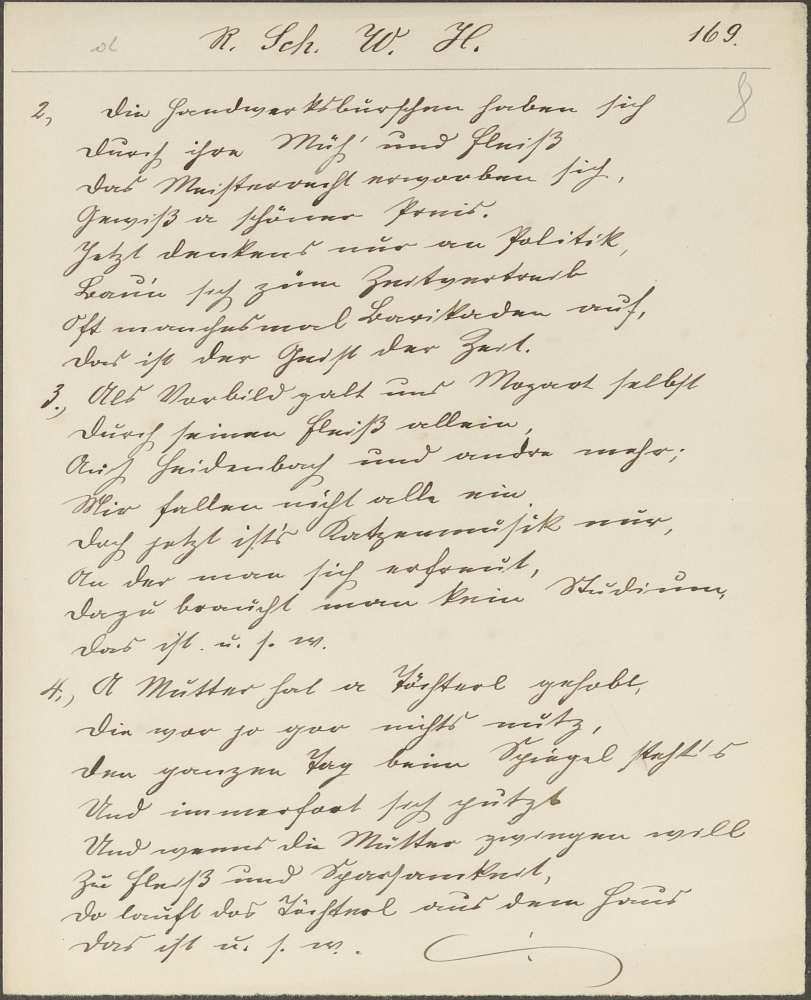 R. Sch. W. H. 169.
8
2, Die Handwerksburschen haben sich
Durch ihre Müh' und Fleiß
Das Meisterrecht erworben sich,
Gewiß a schöner Preis.
Jetzt denkens nur an Politik,
Bau'n sich zum Zeitvertreib
Oft manchesmal Barikaden auf,
Das ist der Geist der Zeit.
3., Als Vorbild galt uns Mozart selbst
Durch seinen Fleiß allein,
Auch Heidenbach und andre mehr;
Mir fallen nicht alle ein
Doch jetzt ist's Katzenmusik nur,
An der man sich erfreut,
Dazu braucht man kein Studium,
Das ist u. s. w.
4., A Mutter hat a Töchterl gehabt,
Die war jo gar nichts nutz,
Den ganzen Tag beim Spiegel steht's
Und immerfort sich putzt
Und wenns die Mutter zwingen will
Zu Fleiß und Sparsamkeit,
Do lauft das Töchterl aus dem Haus
Das ist u. s. w.